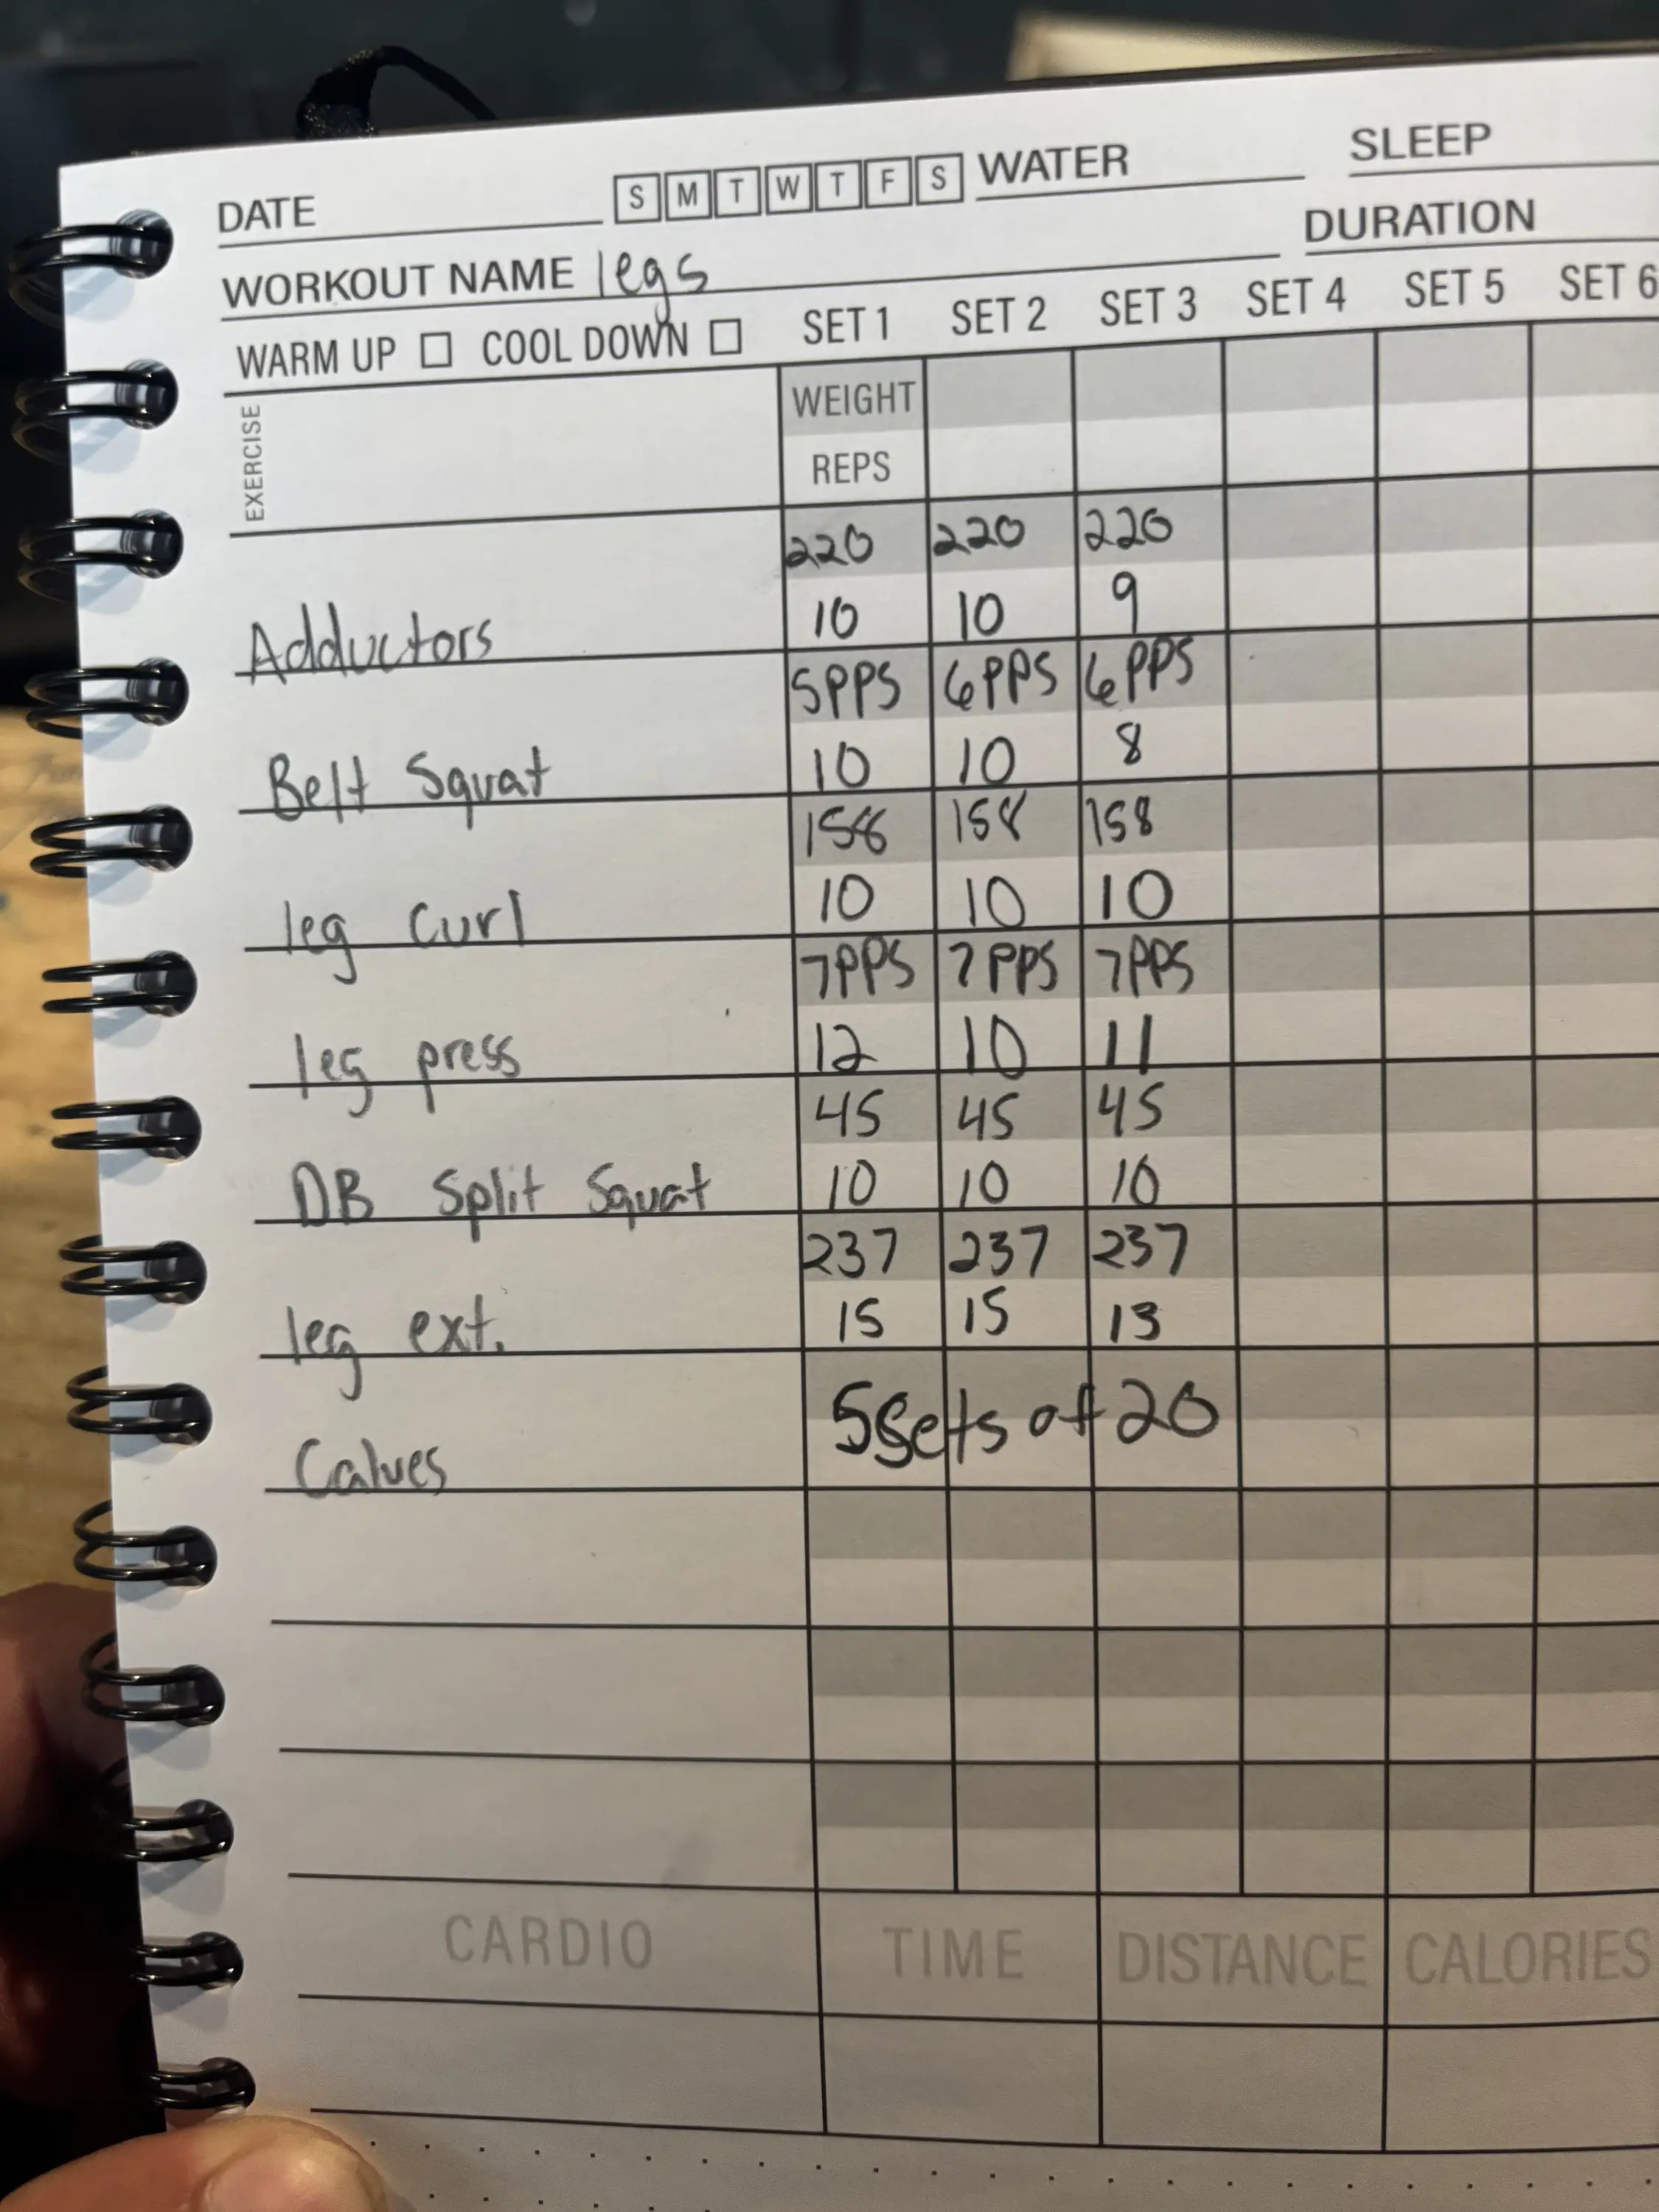 DATE S M T W T F S WATER SLEEP
WORKOUT NAME legs DURATION
WARM UP COOL DOWN SET 1 SET 2 SET 3 SET 4 SET 5 SET 6
EXERCISE
WEIGHT
REPS
220 220 220
Adductors 10 10 9
5PPS 6PPS 6PPS
Belt Squat 10 10 8
158 158 158
leg curl 10 10 10
7PPS 7PPS 7PPS
leg press 12 10 11
45 45 45
DB Split Squat 10 10 10
237 237 237
leg ext. 15 15 13
Calves 5 Sets of 20
CARDIO TIME DISTANCE CALORIES